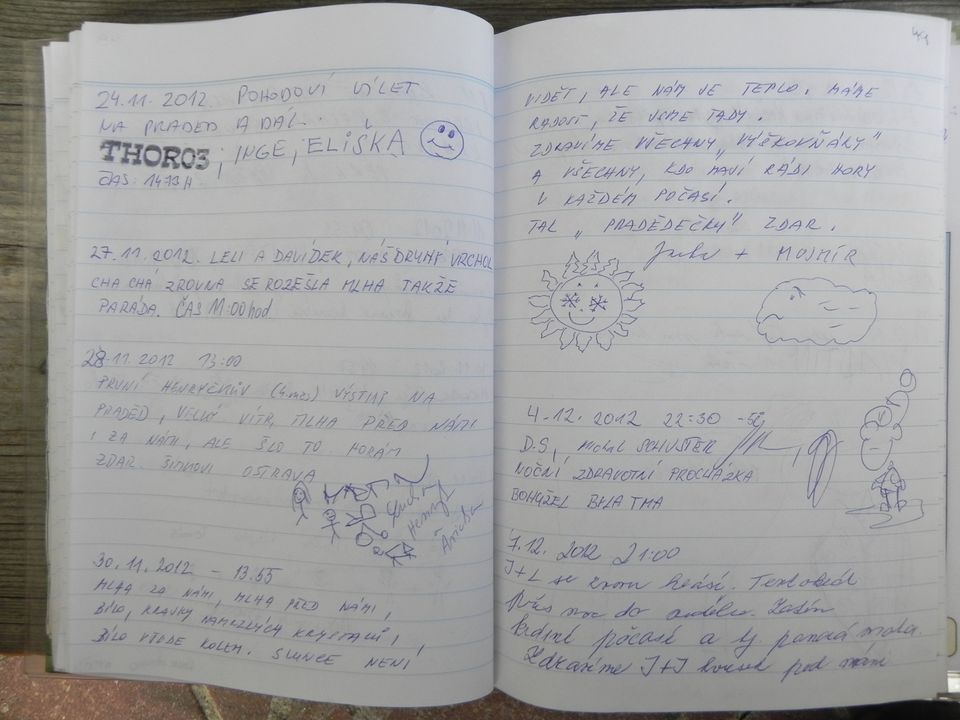 24.11. 2012. POHODOVÍ VÍLET
NA PRADED A DÁL..
THOR03, INGE, ELIŠKA
ČAS: 1473H
27.11.2012. LELI A DAVÍDEK, NÁŠ DRUHÝ VRCHOL
CHA CHÁ ZROVNA SE ROZEŠLA MLHA TAKŽE
PARÁDA. ČAS 11:00hod.
28.11.2012 13:00
PRVNÍ (4.měs) VÝSTUP NA
PRADĚD, VELKÝ VÍTR, MLHA PŘED NÁMI
I ZA NÁMI, ALE ŠLO TO HORÁM
ZDAR. ŠIMKOVI OSTRAVA
30.11.2012 - 13:55
MLHA ZA NÁMI, MLHA PŘED NÁMI,
BÍLO, KRAVKY NAMRZLÝCH KRYSTALŮ,
BÍLO VŠUDE KOLEM. SLUNCE NENÍ
49
VIDĚT, ALE NÁM JE TEPLO. MÁME
RADOST, ŽE JSME TADY.
ZDRAVÍME VŠECHNY „VÝŠKOVŇÁKY"
A VŠECHNY, KDO MAJÍ RÁDI HORY
V KAŽDÉM POČASÍ.
TAK „PRADĚDEČKY" ZDAR.
+ MOJMÍR
4.12. 2012 22:30
D.S, Michal SCHUSTER
NOČNÍ ZDRAVOTNÍ PROCHÁZKA
BOHUŽEL BYLA TMA
7.12. 2012 21:00
J+L se znovu hlásí.
počasí a tj.
Zdravíme J+J pod námi